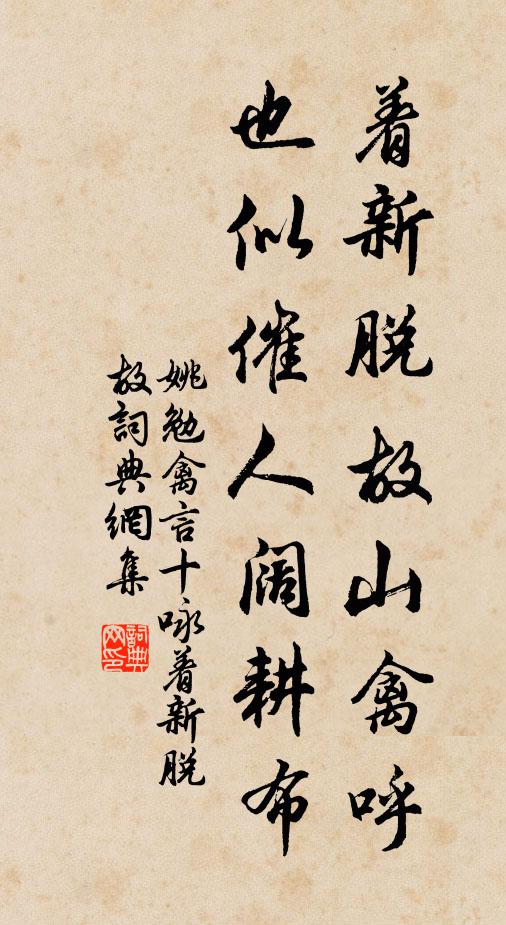 着新脱故山禽呼
也似催人阔耕布
姚勉禽言十咏着新脱
故詞典網集
詞典
网印